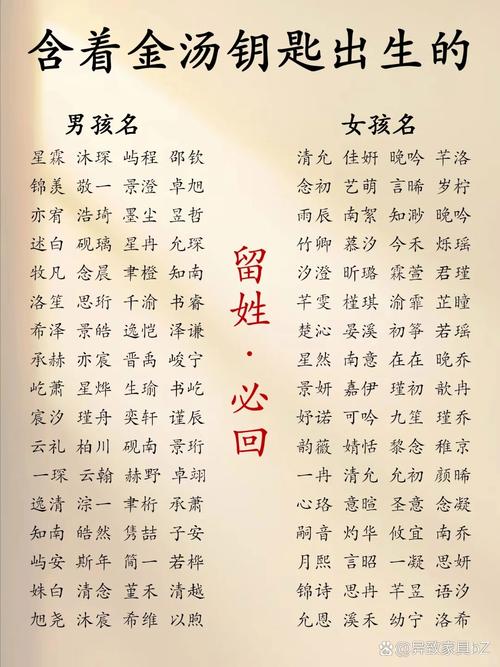 含着金汤钥匙出生的
男孩名
星霖 沐琛 屿程 邵钦
锦羡 敬一 景澄 卓旭
亦宥 浩琦 墨尘 昱哲
述白 砚璃 星冉 允琛
牧凡 念晨 聿橙 知南
洛笙 思珩 千渝 书睿
希泽 景皓 逸恺 泽谦
承赫 亦宸 晋禹 峻宁
屹萧 星烨 生瑜 书屹
宸汐 瑾舟 奕轩 谨辰
云礼 柏川 砚南 景珩
一琛 云翰 赫野 卓翊
逸清 淙一 聿桁 承萧
知南 皓然 隽喆 子安
屿安 斯年 简一 若桦
姝白 清念 堇禾 清越
旭尧 沐宸 希维 以煦
留姓·必回
女孩名
清允 佳妍 晚吟 芊洛
念初 艺萌 言晞 岁柠
雨辰 南絮 知渺 晚吟
竹卿 慕汐 今禾 烁瑶
汐澄 昕璐 霖萱 君瑾
芊雯 槿琪 渝霏 芷瞳
楚沁 晏溪 初筝 若瑶
星然 南意 在在 晚乔
景妍 嘉伊 瑾初 歆冉
妤诺 可吟 九笙 瑾乔
韵薇 婧恬 黎念 稚京
一冉 清允 允初 颜晞
心珞 意暄 圣意 念凝
嗣音 灼华 攸宜 南乔
月熙 言昭 一凝 思妍
锦诗 思冉 芊昱 语汐
允恩 溪禾 幼宁 洛希
异致家具bZ